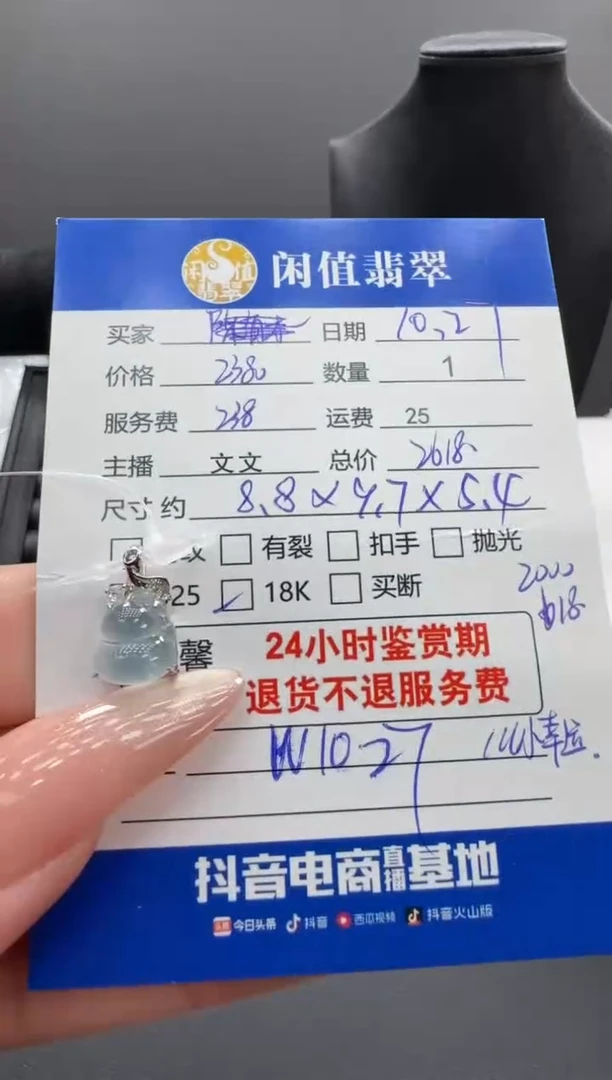 闲值翡翠
闲值
翡翠
买家 日期 10.21
价格 2380 数量 1
服务费 238 运费 25
主播 文文 总价 2618
尺寸 约 8.8×9.7×5.4
有裂 扣手 抛光
25 18K 买断
2000
618
馨 24小时鉴赏期
退货不退服务费
W1027 小幸运.
抖音电商直播基地
头条 今日头条 抖音 西瓜视频 抖音火山版